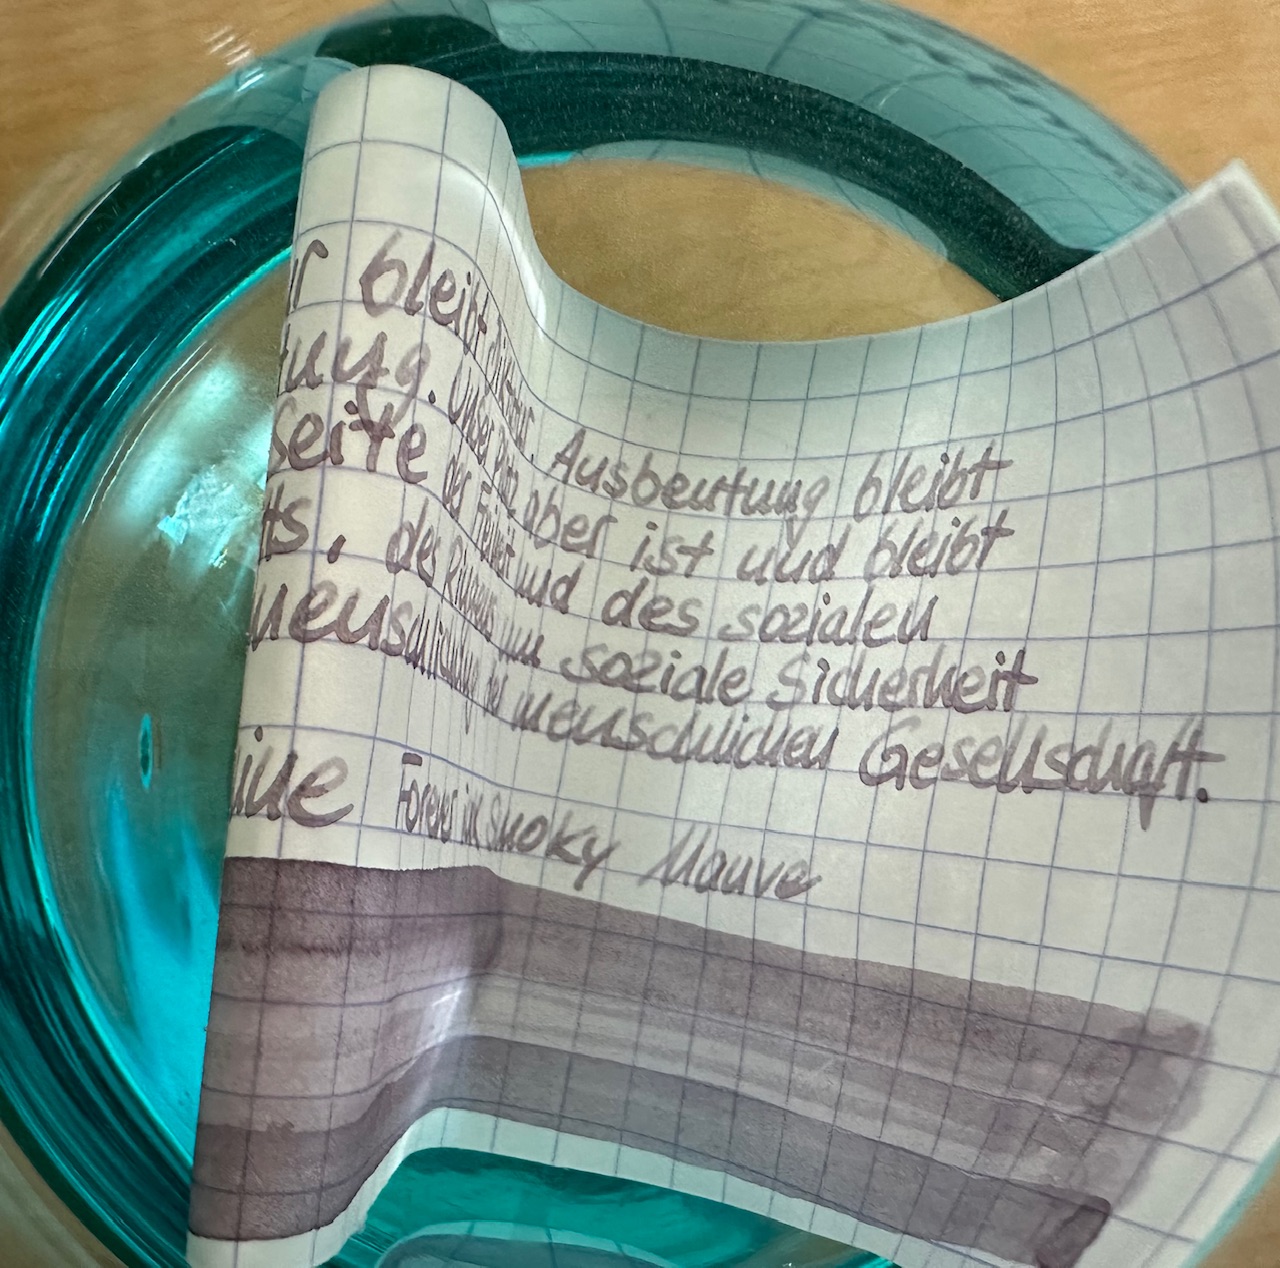 bleibt Diktatur. Ausbeutung bleibt
tung. Unser Platz aber ist und bleibt
Seite der Freiheit und des sozialen
ts, des Ringens um soziale Sicherheit
menschlichen Gesellschaft.
ine Forever ink Smoky Mauve